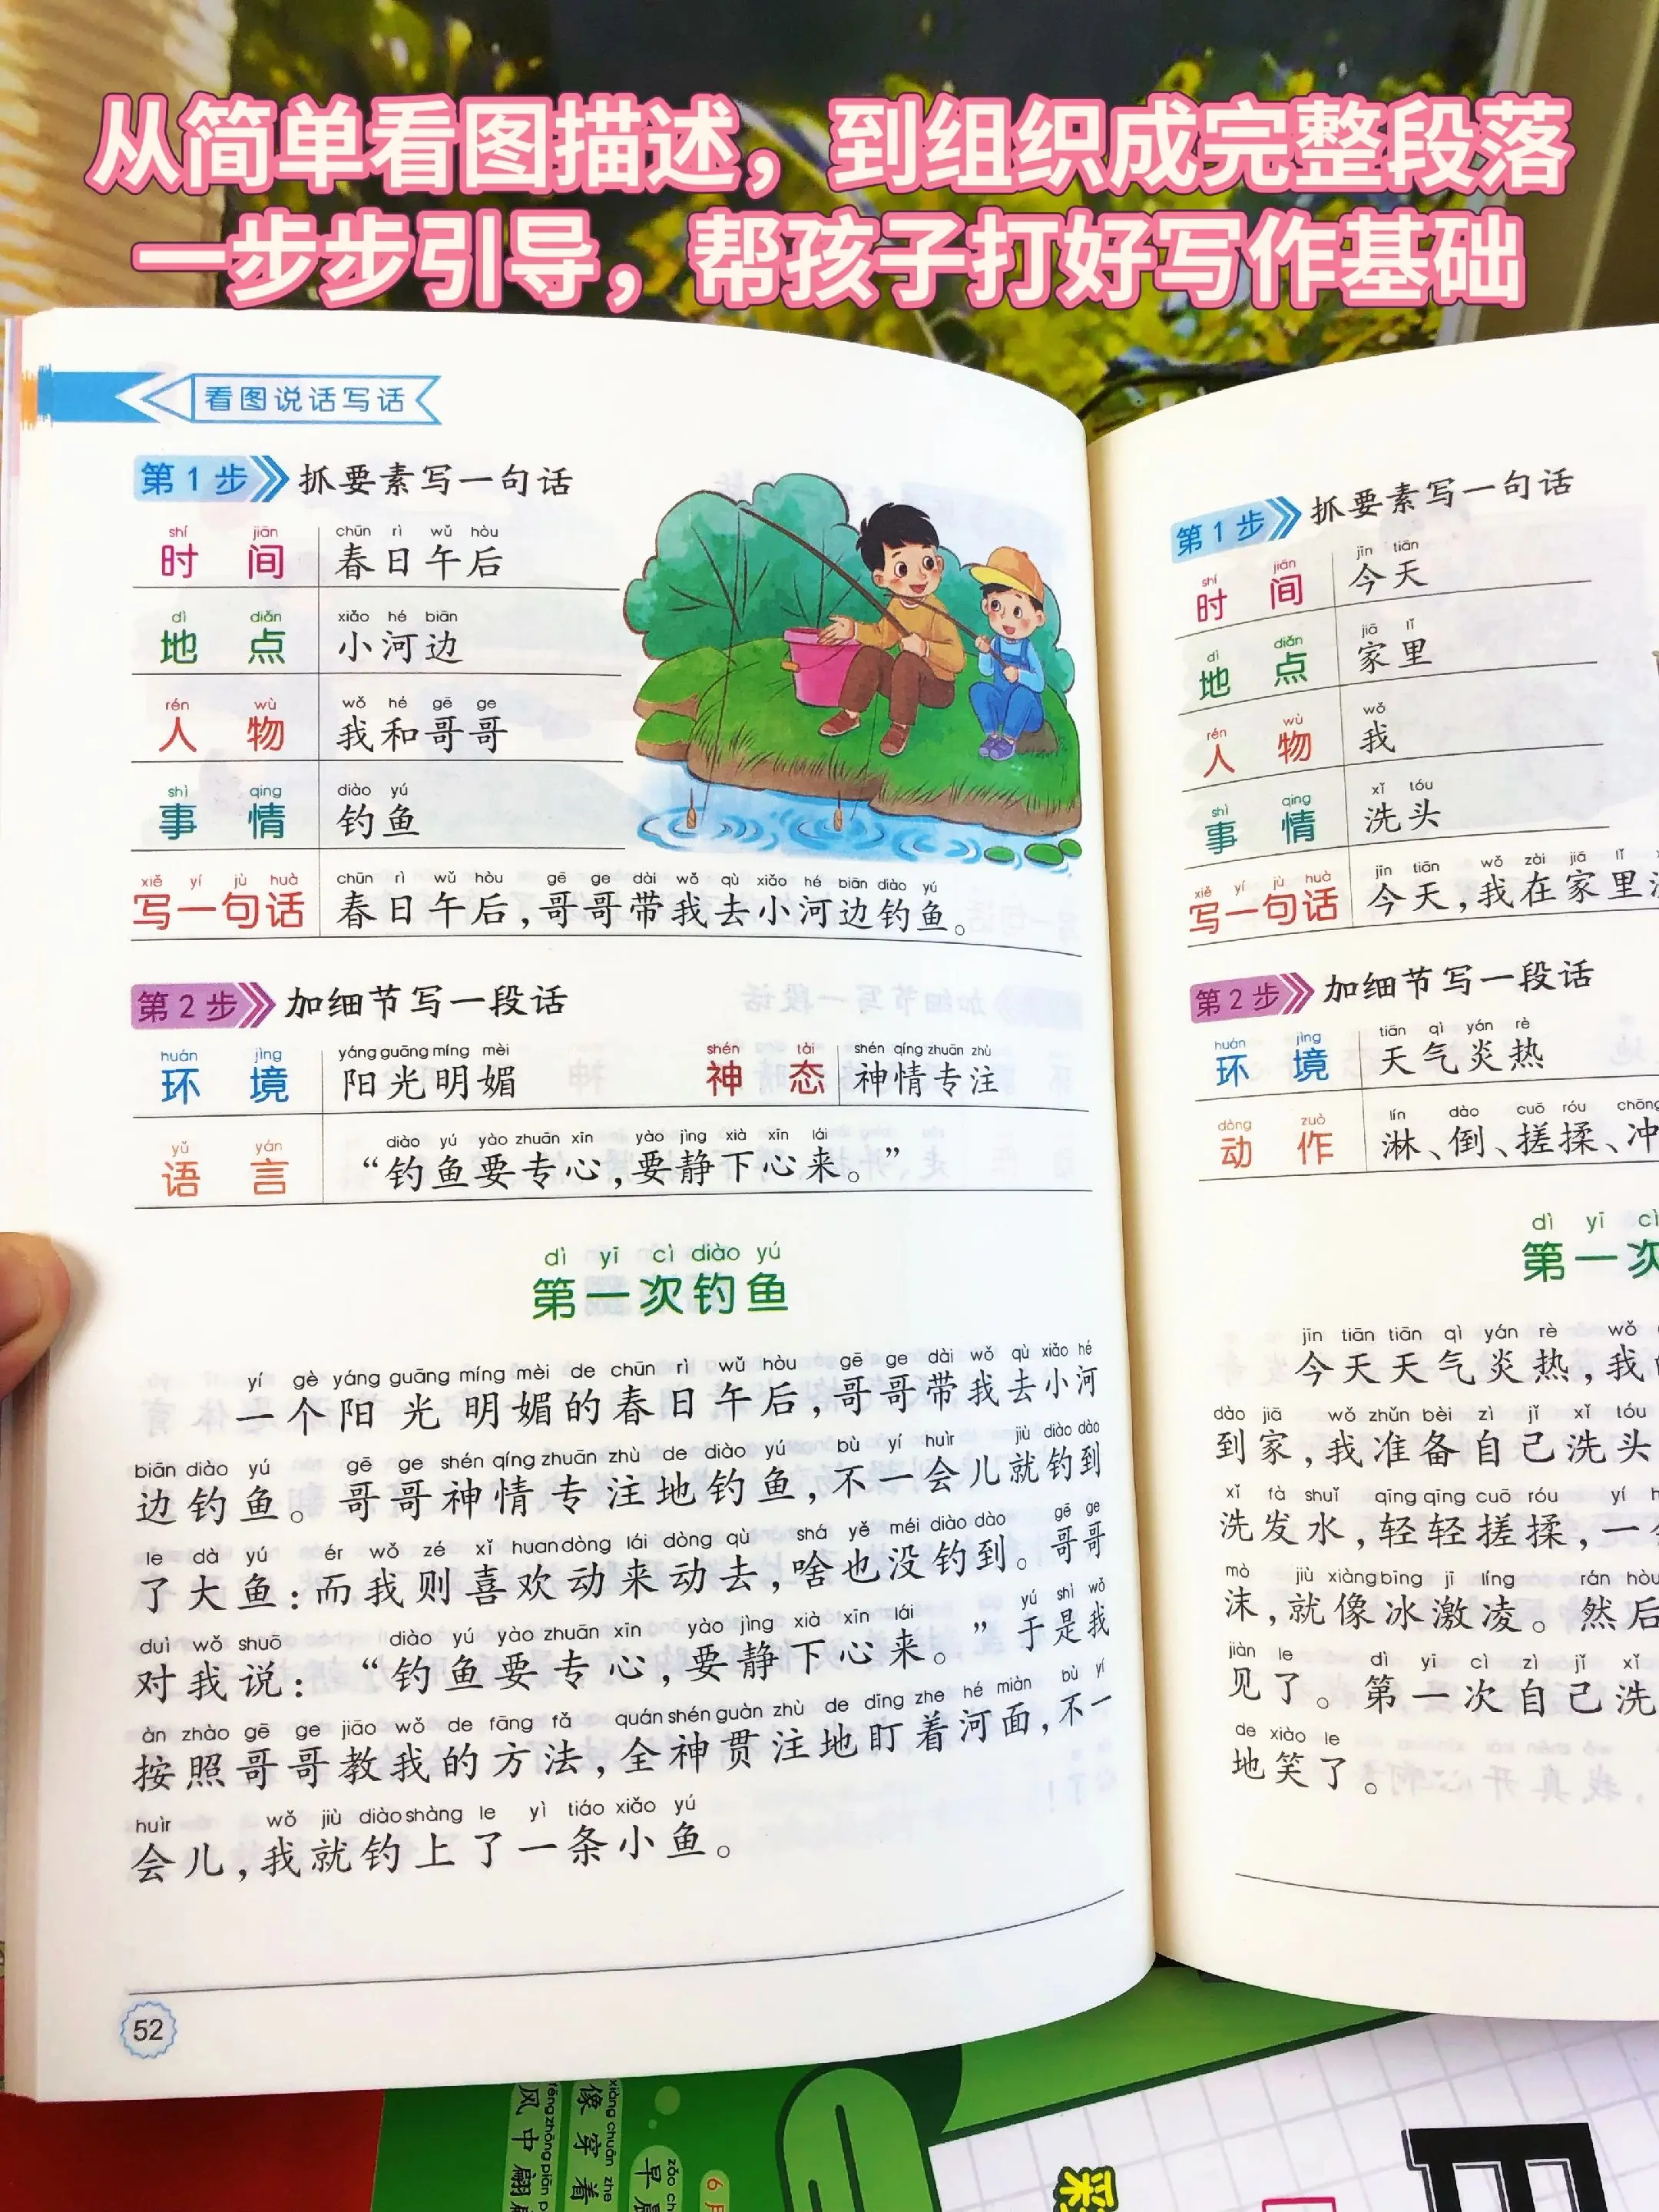 从简单看图描述，到组织成完整段落
一步步引导，帮孩子打好写作基础
看图说话写话
第1步 抓要素写一句话
shí jiān chūn rì wǔ hòu
时间 春日午后
dì diǎn xiǎo hé biān
地点 小河边
rén wù wǒ hé gē ge
人物 我和哥哥
shì qing diào yú
事情 钓鱼
xiě yí jù huà chūn rì wǔ hòu gē ge dài wǒ qù xiǎo hé biān diào yú
写一句话 春日午后，哥哥带我去小河边钓鱼。
第2步 加细节写一段话
huán jìng yáng guāng míng mèi shén tài shén qíng zhuān zhù
环境 阳光明媚 神态 神情专注
yǔ yán diào yú yào zhuān xīn yào jìng xià xīn lái
语言 “钓鱼要专心，要静下心来。”
dì yī cì diào yú
第一次钓鱼
yí gè yáng guāng míng mèi de chūn rì wǔ hòu gē ge dài wǒ qù xiǎo hé
一个阳光明媚的春日午后，哥哥带我去小河
biān diào yú gē ge shén qíng zhuān zhù de diào yú bù yí huìr jiù diào dào
边钓鱼。哥哥神情专注地钓鱼，不一会儿就钓到
le dà yú ér wǒ zé xǐ huan dòng lái dòng qù shá yě méi diào dào gē ge
了大鱼：而我则喜欢动来动去，啥也没钓到。哥哥
duì wǒ shuō diào yú yào zhuān xīn yào jìng xià xīn lái yú shì wǒ
对我说：“钓鱼要专心，要静下心来。”于是我
àn zhào gē ge jiāo wǒ de fāng fǎ quán shén guàn zhù de dīng zhe hé miàn bù yí
按照哥哥教我的方法，全神贯注地盯着河面，不一
huìr wǒ jiù diào shàng le yì tiáo xiǎo yú
会儿，我就钓上了一条小鱼。
52
第1步 抓要素写一句话
shí jiān jīn tiān
时间 今天
dì diǎn jiā lǐ
地点 家里
rén wù wǒ
人物 我
shì qing xǐ tóu
事情 洗头
xiě yí jù huà jīn tiān wǒ zài jiā lǐ
写一句话 今天，我在家里
第2步 加细节写一段话
huán jìng tiān qì yán rè
环境 天气炎热
dòng zuò lín dào cuō róu chōng
动作 淋、倒、搓揉、冲
dì yī cì
第一次
jīn tiān tiān qì yán rè wǒ
今天天气炎热，我
dào jiā wǒ zhǔn bèi zì jǐ xǐ tóu
到家，我准备自己洗头
xǐ fà shuǐ qīng qīng cuō róu yí
洗发水，轻轻搓揉，一
mò jiù xiàng bīng jī líng rán hòu
沫，就像冰激凌。然后
jiàn le dì yī cì zì jǐ xǐ
见了。第一次自己洗
de xiào le
地笑了。
xiàng chuān zhe
像穿着
风中翩
zǎo
早
6月